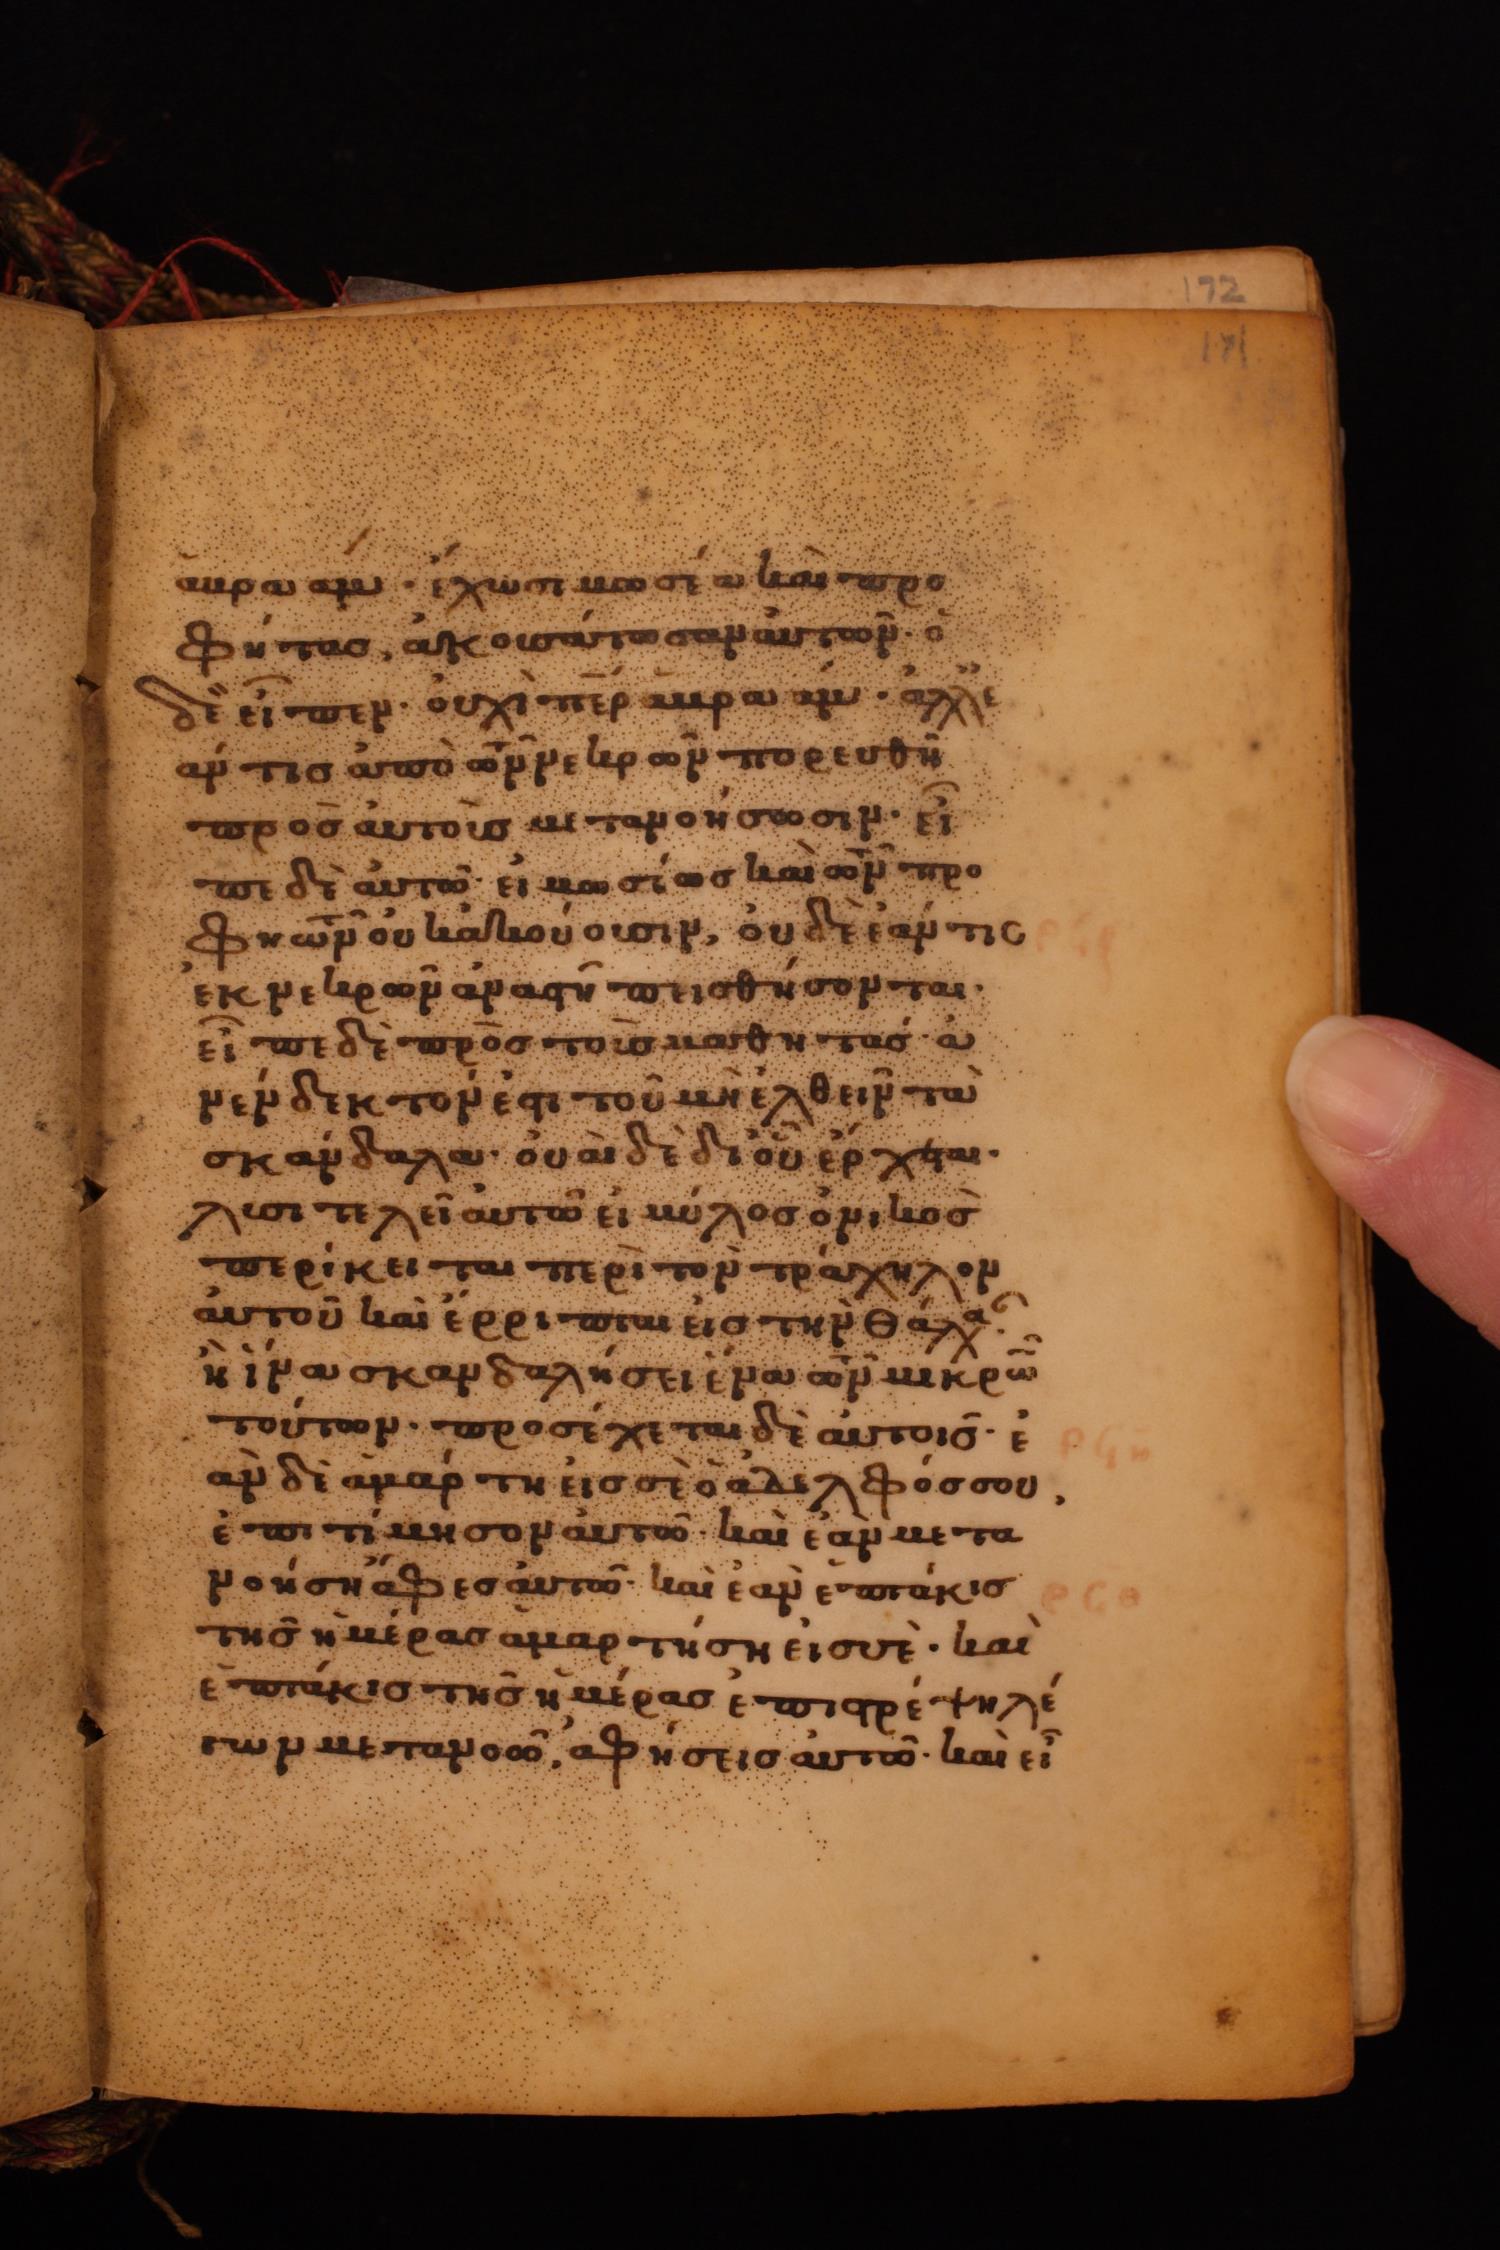 172
171
ἀβραάμ· ἔχωσι μωσέα καὶ προ
φήτας, ἀκουσάτωσαν αὐτῶν· ὁ
δὲ εἶπεν· οὐχὶ περ ἀβραάμ· ἀλλ ἐ
άν τις ἀπὸ τῶν νεκρῶν πορευθῆ
πρὸς αὐτοὺς μετανοήσωσιν· εἶ
πε δὲ αὐτῶ· εἰ μωσέως καὶ τῶν προ
φητῶν οὐκ ἀκούουσιν, οὐδὲ ἐάν τις
ἐκ νεκρῶν ἀναστῆ πεισθήσονται·
εἶπε δὲ πρὸς τοὺς μαθητάς· ἀ
νένδεκτον ἐστι τοῦ μὴ ἐλθεῖν τὰ
σκάνδαλα· οὐαὶ δὲ δι οὗ ἔρχεται·
λυσιτελεῖ αὐτῶ εἰ μύλος ὀνικὸς
περίκειται περὶ τὸν τράχηλον
αὐτοῦ καὶ ἔρριπται εἰς τὴν θάλα
ἢ ἵνα σκανδαλήσει ἕνα τῶν μικρῶ
τούτων· προσέχεται δὲ αὐτοῖς· ἐ
ὰν δὲ ἁμάρτη εἰς σὲ ὁ ἀδελφός σου,
ἐπιτίμησον αὐτῶ· καὶ ἐὰν μετα
νοήση ἄφες αὐτῶ· καὶ ἐὰν ἑπτάκις
τῆς ἡμέρας ἁμαρτήση εἰς σὲ· καὶ
ἑπτάκις τῆς ἡμέρας ἐπιστρέψη λέ
γων μετανοῶ, ἀφήσεις αὐτῶ· καὶ εἶ